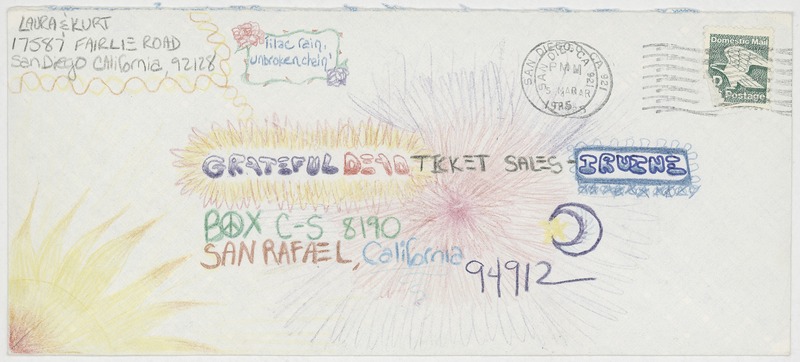 LAURA & KURT
17587 FAIRLIE ROAD
San Diego California, 92128
"lilac rain,
unbroken chain"
SAN DIEGO CA 921
PM
5 MAR
1985
Domestic Mail
D
Postage
GRATEFUL DEAD TICKET SALES - IRVINE
BOX C-S 8190
SAN RAFAEL, California
94912